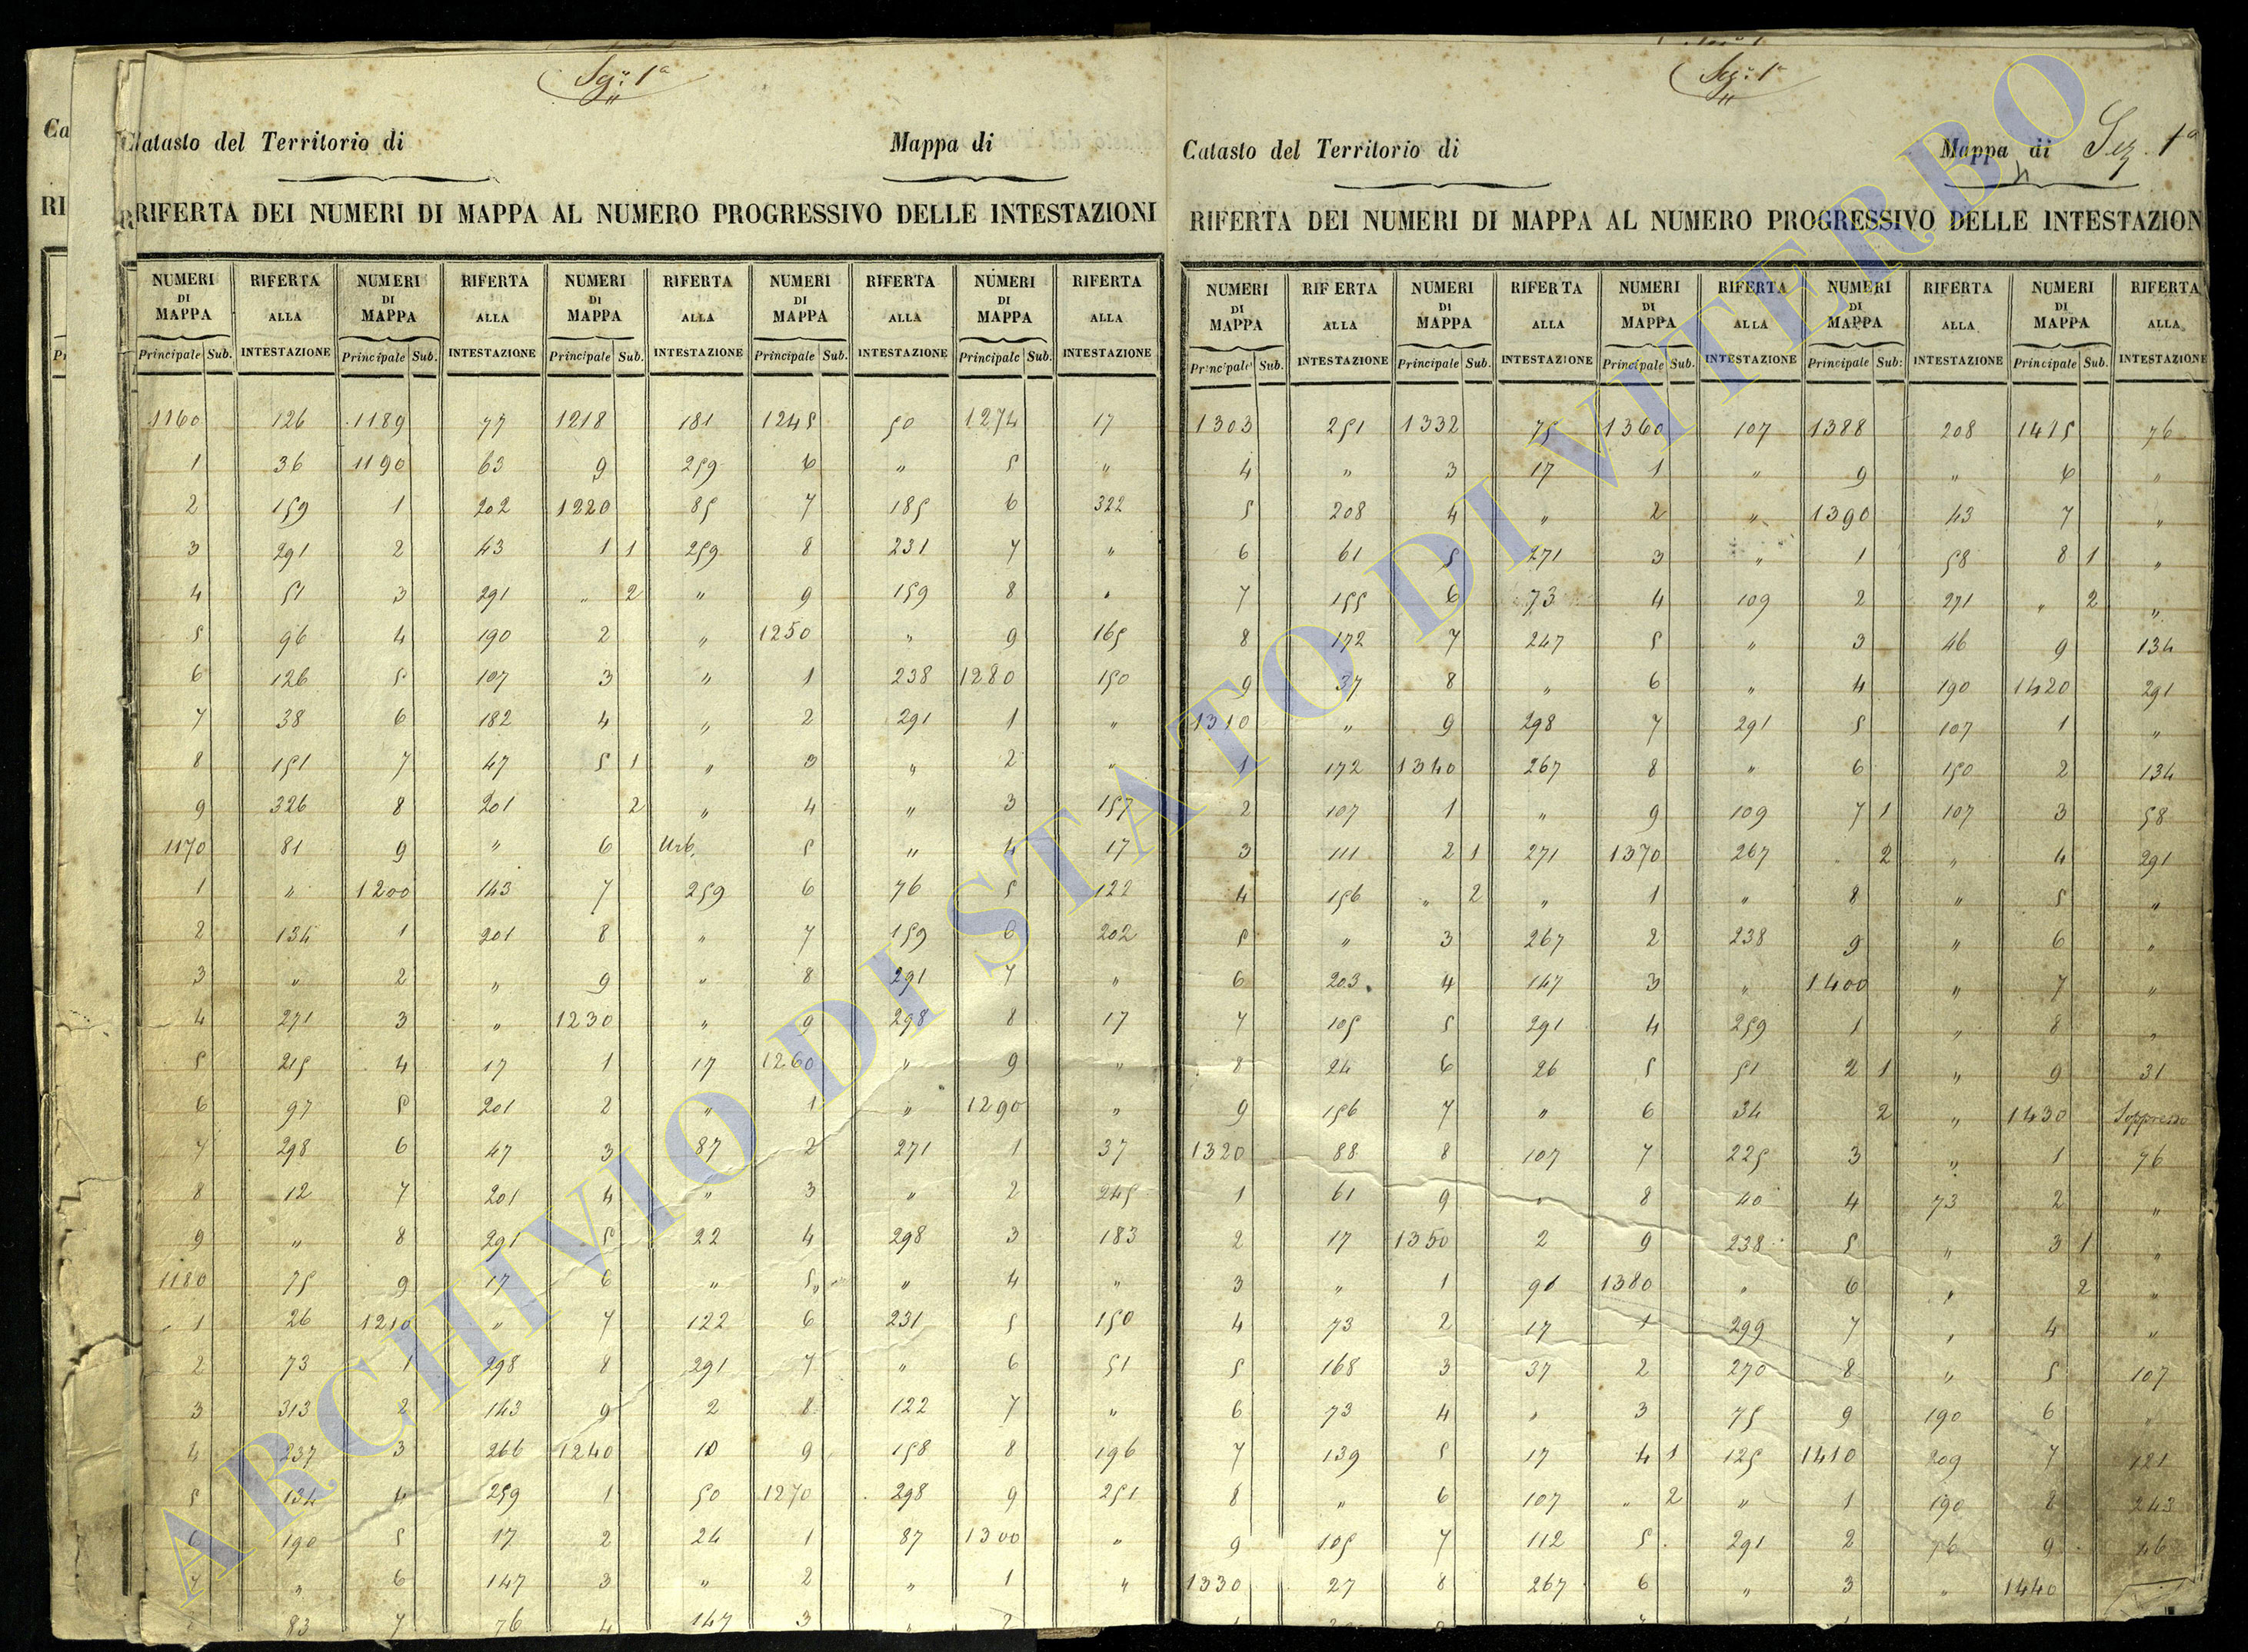 Seg: 1ª
Catasto del Territorio di Mappa di
RIFERTA DEI NUMERI DI MAPPA AL NUMERO PROGRESSIVO DELLE INTESTAZIONI
NUMERI DI MAPPA RIFERTA ALLA NUMERI DI MAPPA RIFERTA ALLA NUMERI DI MAPPA RIFERTA ALLA NUMERI DI MAPPA RIFERTA ALLA NUMERI DI MAPPA RIFERTA ALLA
Principale Sub. INTESTAZIONE Principale Sub. INTESTAZIONE Principale Sub. INTESTAZIONE Principale Sub. INTESTAZIONE Principale Sub. INTESTAZIONE
1160 126 1189 77 1218 181 1245 50 1274 17
1 36 1190 63 9 259 6 " 5 "
2 159 1 202 1220 85 7 185 6 322
3 291 2 43 1 1 259 8 231 7 "
4 51 3 291 " 2 " 9 159 8 "
5 96 4 190 2 " 1250 " 9 165
6 126 5 107 3 " 1 238 1280 150
7 38 6 182 4 " 2 291 1 "
8 151 7 47 5 1 " 3 " 2 "
9 326 8 201 2 " 4 " 3 157
1170 81 9 " 6 Urb. 5 " 4 17
1 " 1200 143 7 259 6 76 5 122
2 134 1 201 8 " 7 159 6 202
3 " 2 " 9 " 8 291 7 "
4 271 3 " 1230 " 9 298 8 17
5 215 4 17 1 17 1260 " 9 "
6 97 5 201 2 " 1 " 1290 "
7 298 6 47 3 87 2 271 1 37
8 12 7 201 4 " 3 " 2 245
9 " 8 291 5 22 4 298 3 183
1180 75 9 17 6 " 5 " 4 "
1 26 1210 " 7 122 6 231 5 150
2 73 1 298 8 291 7 " 6 51
3 313 2 143 9 2 8 122 7 "
4 237 3 266 1240 10 9 158 8 196
5 134 4 259 1 50 1270 298 9 251
6 190 5 17 2 24 1 87 1300 "
7 " 6 147 3 " 2 " 1 "
83 7 76 4 147 3 " 2
Seg: 1ª
Catasto del Territorio di Mappa di Sez. 1ª
RIFERTA DEI NUMERI DI MAPPA AL NUMERO PROGRESSIVO DELLE INTESTAZION
NUMERI DI MAPPA RIFERTA ALLA NUMERI DI MAPPA RIFERTA ALLA NUMERI DI MAPPA RIFERTA ALLA NUMERI DI MAPPA RIFERTA ALLA NUMERI DI MAPPA RIFERTA ALLA
Principale Sub. INTESTAZIONE Principale Sub. INTESTAZIONE Principale Sub. INTESTAZIONE Principale Sub. INTESTAZIONE Principale Sub. INTESTAZIONE
1303 251 1332 75 1360 107 1388 208 1415 76
4 " 3 17 1 " 9 " 6 "
5 208 4 " 2 " 1390 43 7 "
6 61 5 271 3 " 1 58 8 1 "
7 155 6 73 4 109 2 271 " 2 "
8 172 7 247 5 " 3 46 9 134
9 37 8 " 6 " 4 190 1420 291
1310 " 9 298 7 291 5 107 1 "
1 172 1340 267 8 " 6 150 2 134
2 107 1 " 9 109 7 1 107 3 58
3 111 2 1 271 1370 267 2 " 4 291
4 156 " 2 " 1 " 8 " 5 "
5 " 3 267 2 238 9 " 6 "
6 203 4 147 3 " 1400 " 7 "
7 105 5 291 4 259 1 " 8 "
8 24 6 26 5 51 2 1 " 9 31
9 156 7 " 6 34 2 " 1430 Soppresso
1320 88 8 107 7 225 3 " 1 76
1 61 9 " 8 40 4 73 2 "
2 17 1350 2 9 238 5 " 3 1 "
3 " 1 91 1380 " 6 " 2 "
4 73 2 17 1 299 7 " 4 "
5 168 3 37 2 270 8 " 5 107
6 73 4 " 3 75 9 190 6 "
7 139 5 17 4 1 125 1410 209 7 121
8 " 6 107 " 2 " 1 190 8 243
9 105 7 112 5 291 2 76 9 46
1330 27 8 267 6 " 3 " 1440
ARCHIVIO DI STATO DI VITERBO